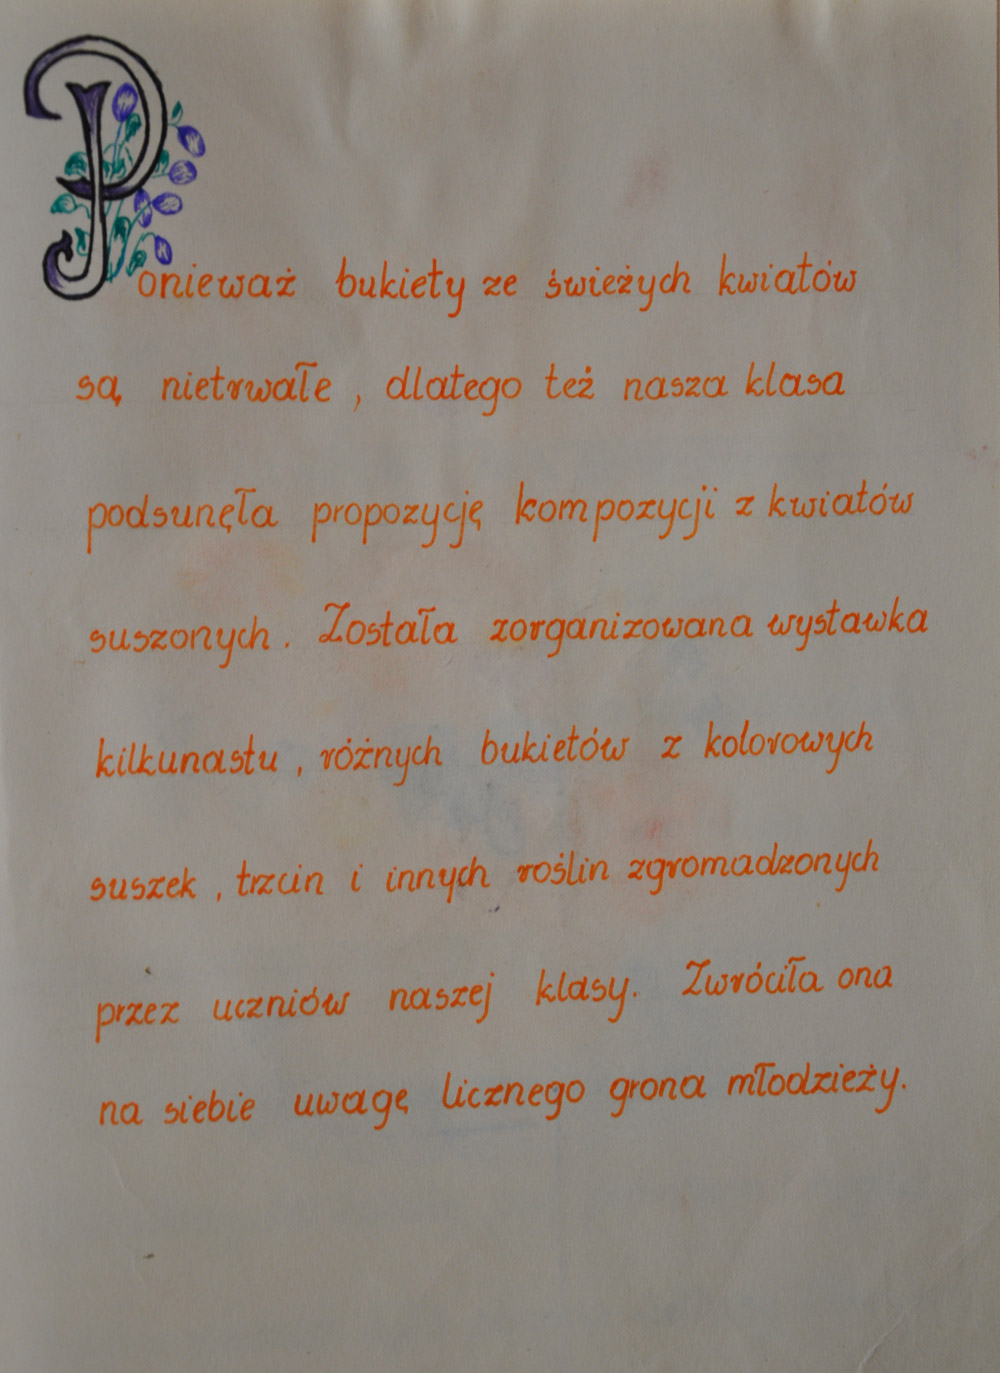 Ponieważ bukiety ze świeżych kwiatów
są nietrwałe , dlatego też nasza klasa
podsunęła propozycję kompozycji z kwiatów
suszonych . Została zorganizowana wystawka
kilkunastu , różnych bukietów z kolorowych
suszek , trzcin i innych roślin zgromadzonych
przez uczniów naszej klasy. Zwróciła ona
na siebie uwagę licznego grona młodzieży.